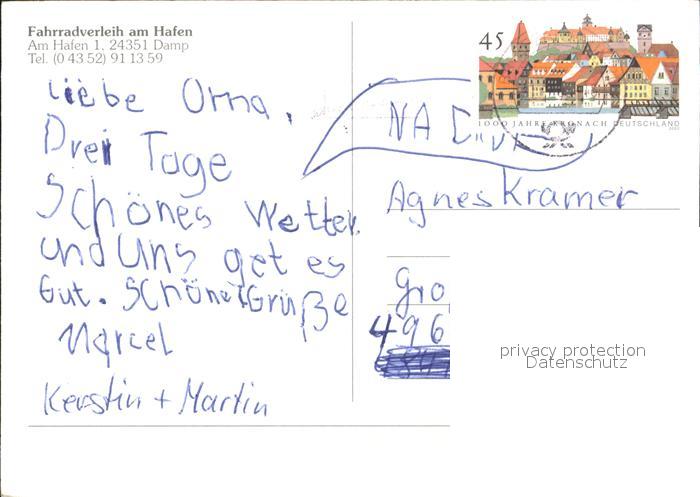 Fahrradverleih am Hafen
Am Hafen 1, 24351 Damp
Tel. (0 43 52) 91 13 59
Liebe Oma,
Drei Tage
Schönes Wetter
und Uns get es
Gut. Schöne Grüße
Marcel
Kerstin + Martin
45
1000 JAHRE KRONACH DEUTSCHLAND
NA
Agnes Kramer
Gro
496
privacy protection
Datenschutz